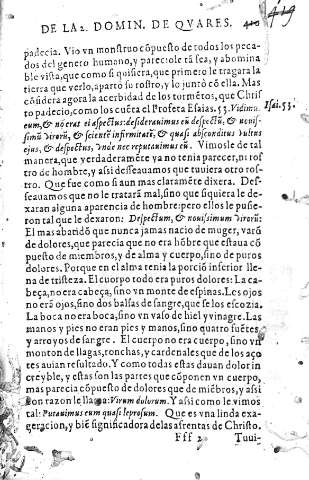 DE LA 2. DOMIN. DE QVARES. 419
padecia. Vio vn monstruo cōpuesto de todos los peca-
dos del genero humano, y pareciole tā fea, y abomina
ble vista, que como si quisiera, que primero le tragara la
tierra que verlo, apartò su rostro, y lo juntò cō ella. Mas
cōsidera agora la acerbidad de los tormētos, que Chris
to padecio, como los cuēta el Profeta Esaias. 53. Vidimus
Isai. 53.
eum, & nō erat ei aspectus: desiderauimus eū despectū, & noui-
ssimū virorū, & scientē infirmitatē, & quasi absconditus vultus
ejus, & despectus, vnde nec reputauimus eū. Vimosle de tal
manera, que verdaderamēte ya no tenia parecer, ni ros
tro de hombre, y assi desseauamos que tuuiera otro ros-
tro. Que fue como si aun mas claramēte dixera. Des-
seauamos que no le tratarā mal, sino que siquiera le de
xaran alguna aparencia de hombre: pero ellos le pusie-
ron tal que le dexaron: Despectum, & nouissimum virorū:
El mas abatido que nunca jamas nacio de muger, varō
de dolores, que parecia que no era hōbre que estaua cō
puesto de miembros, y de alma y cuerpo, sino de puros
dolores. Porque en el alma tenia la porciō inferior lle-
na de tristeza. El cuerpo todo era puros dolores: La ca-
beça, no era cabeça, sino vn monte de espinas. Les ojos
no erā ojos, sino dos balsas de sangre, que se los escozia.
La boca no era boca, sino vn vaso de hiel y vinagre. Las
manos y pies no eran pies y manos, sino quatro fuētes,
y arroyos de sangre. El cuerpo no era cuerpo, sino vn
monton de llagas, ronchas, y cardenales que de los aço
tes auian resultado. Y como todas estas dauan dolor in
creyble, y estas son las partes que cōponen vn cuerpo,
mas parecia cōpuesto de dolores que de miēbros, y assi
con razon le llama: Virum dolorum. Y assi como le vimos
tal: Putauimus eum quasi leprosum. Que es vna linda exa-
geracion, y biē significadora de las afrentas de Christo.
Fff 2 Tuui-